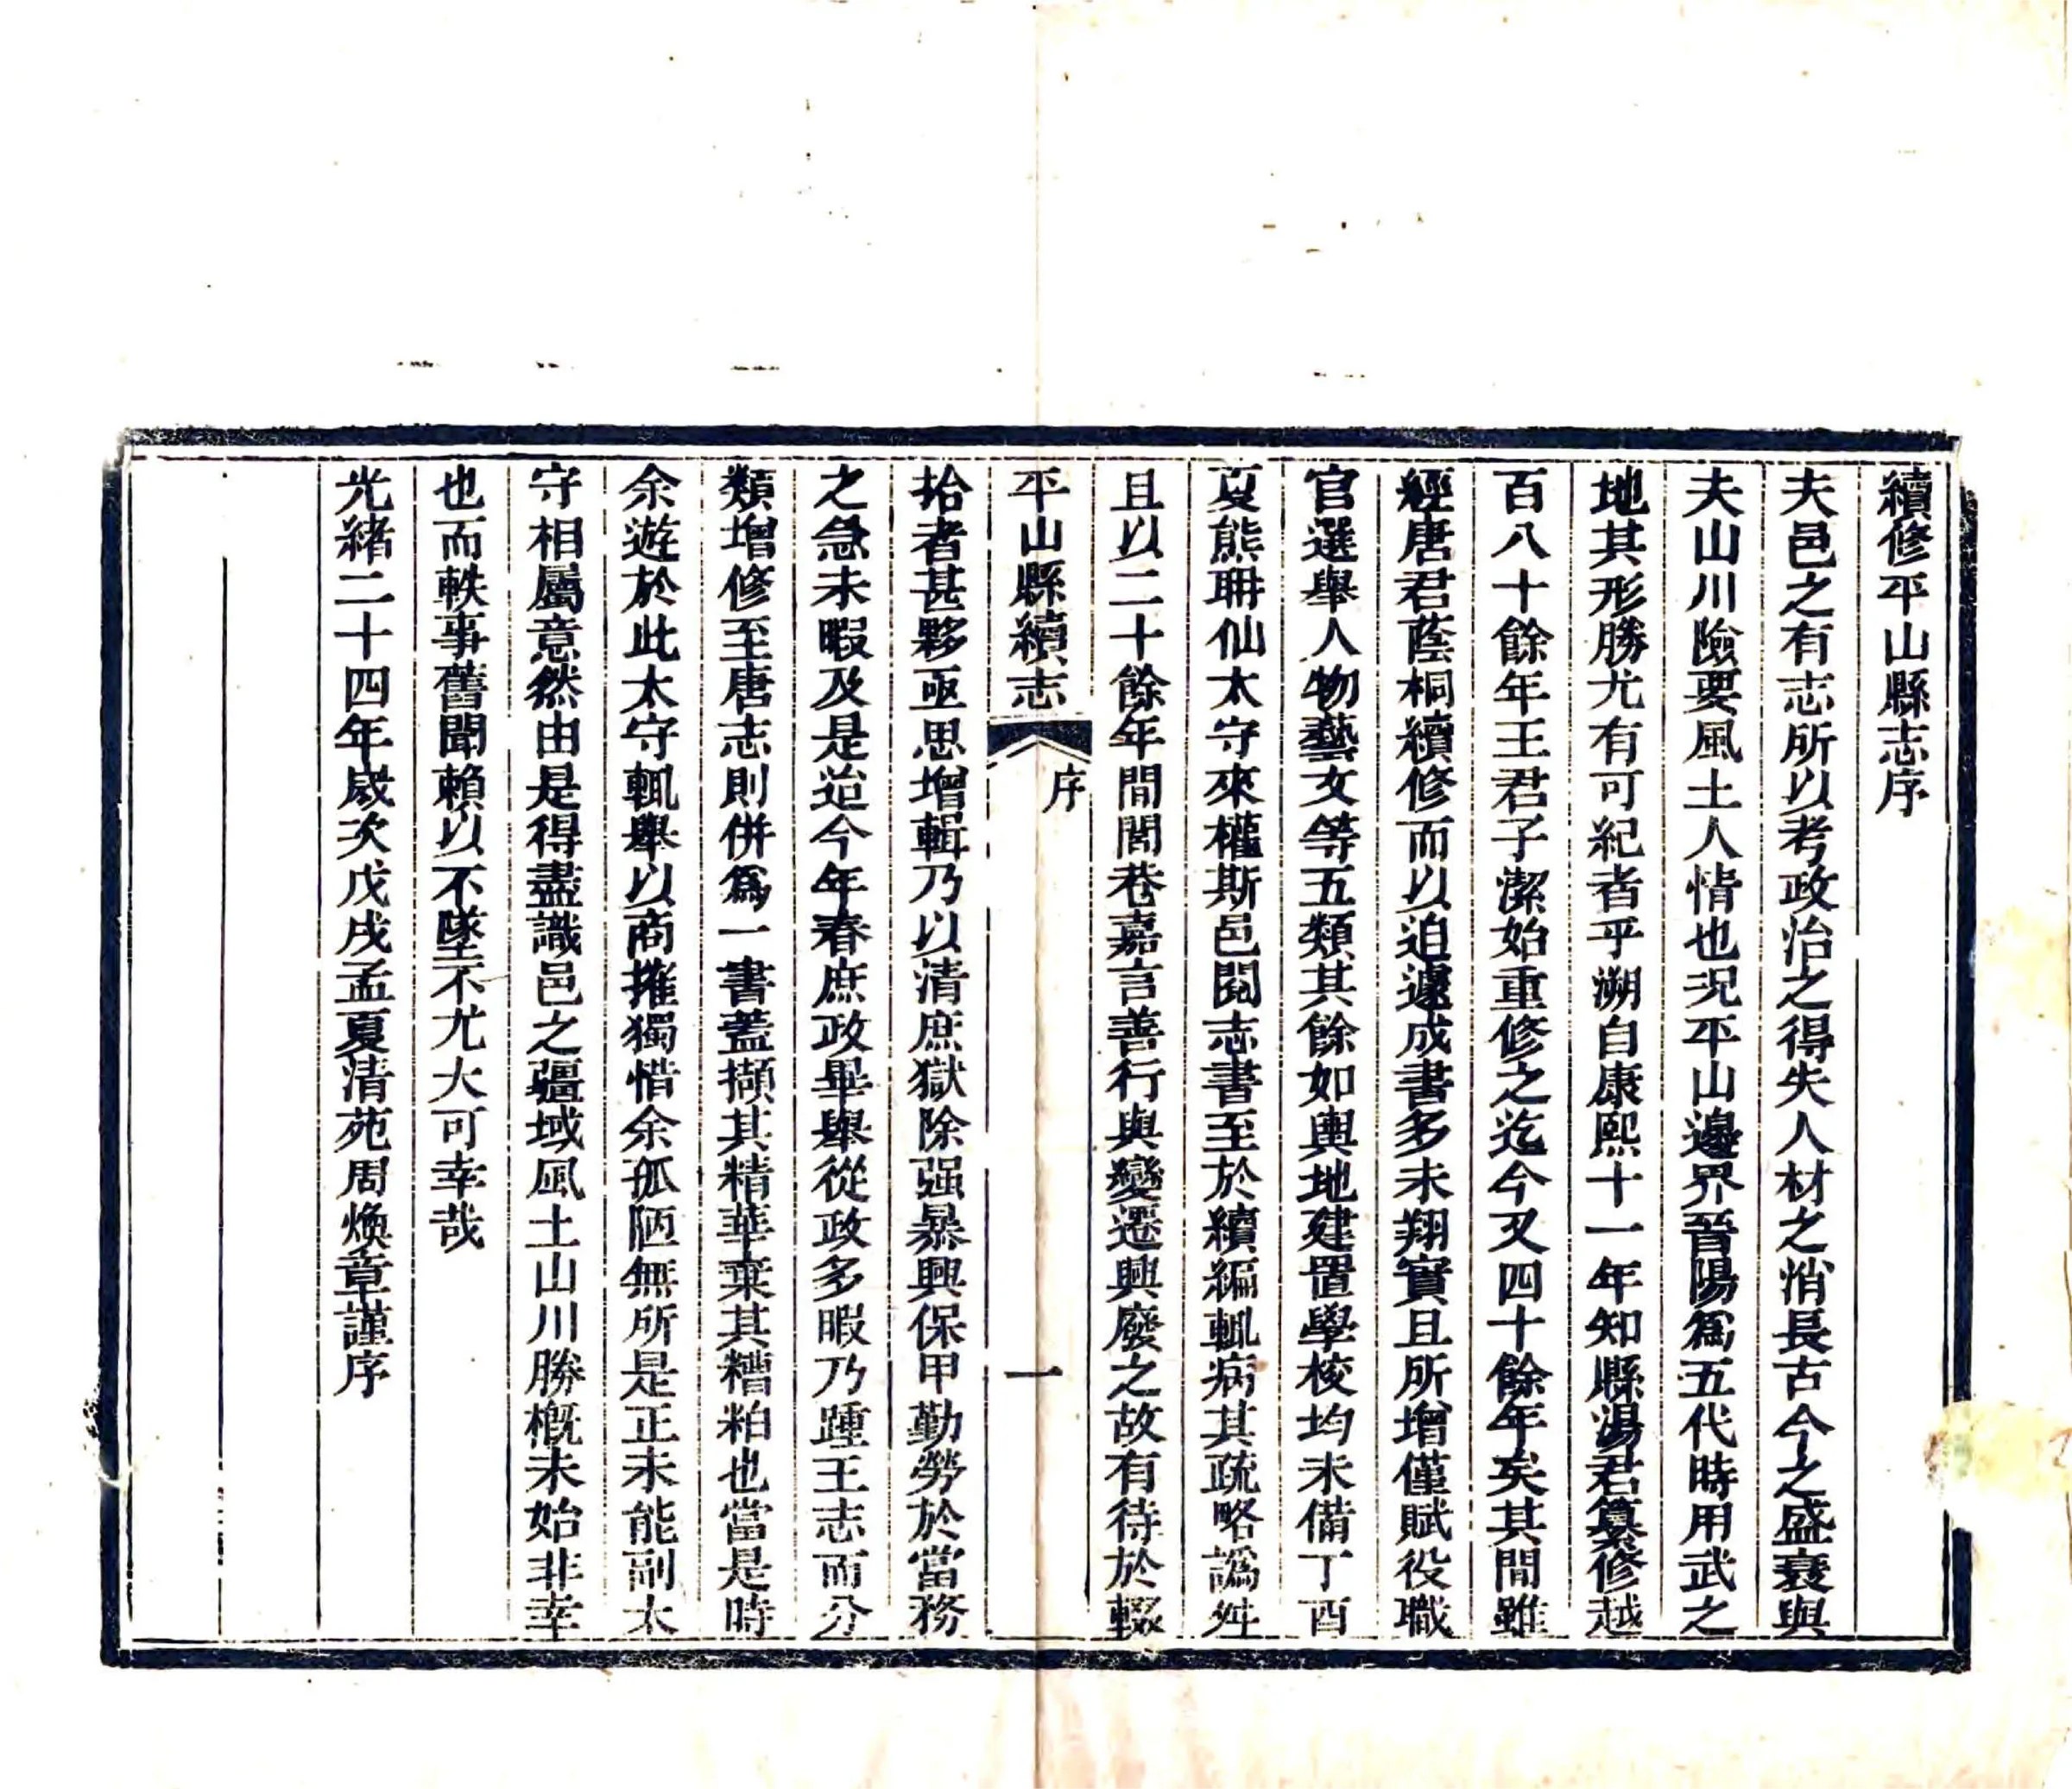 續修平山縣志序
夫邑之有志所以考政治之得失人材之消長古今之盛衰與
夫山川險要風土人情也况平山邊界晉陽爲五代時用武之
地其形勝尤有可紀者乎溯自康熙十一年知縣湯君纂修越
百八十餘年王君子潔始重修之迄今又四十餘年矣其間雖
經唐君蔭桐續修而以迫遽成書多未翔實且所增僅賦役職
官選舉人物藝文等五類其餘如輿地建置學校均未備丁酉
夏熊聃仙太守來權斯邑閱志書至於續編輒病其疏略譌舛
且以二十餘年間閭巷嘉言善行與變遷興廢之故有待於輟
平山縣續志
序
一
拾者甚夥亟思增輯乃以清庶獄除强暴興保甲勤勞於當務
之急未暇及是迨今年春庶政畢舉從政多暇乃踵王志而分
類增修至唐志則併爲一書蓋擷其精華棄其糟粕也當是時
余遊於此太守輒舉以商搉獨惜余孤陋無所是正未能副太
守相屬意然由是得盡識邑之疆域風土山川勝概未始非幸
也而軼事舊聞賴以不墜不尤大可幸哉
光緒二十四年歲次戊戌孟夏清苑周煥章謹序